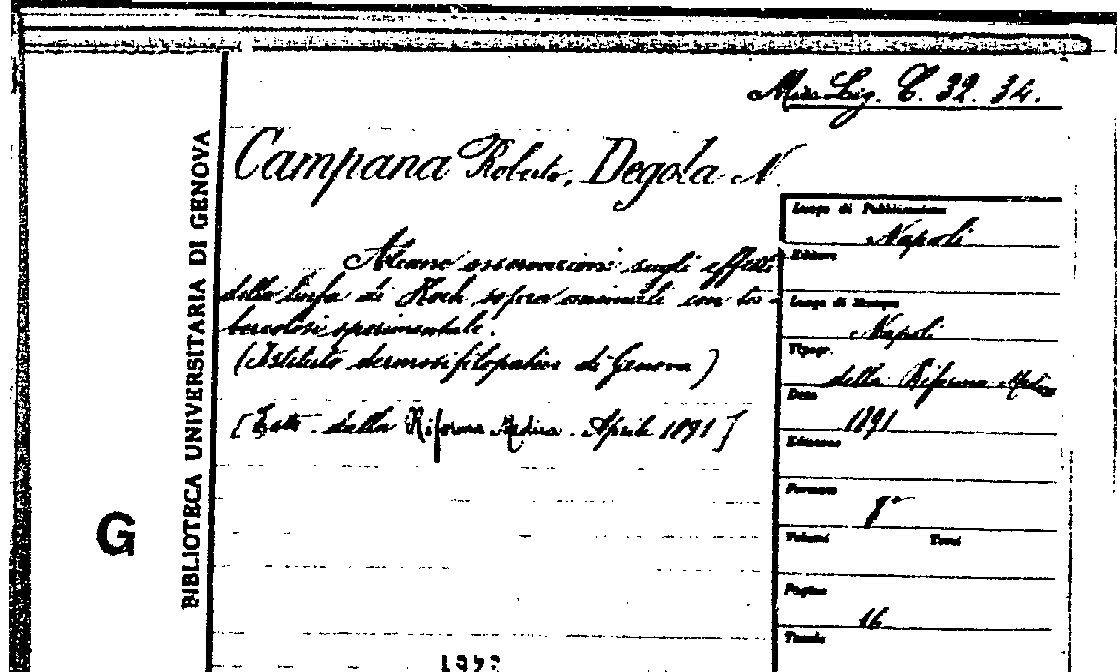 Misc. Lig. C. 32. 34.
Campana Roberto, Degola N.
Alcune osservazioni sugli effetti
della linfa di Koch sopra animali con tu-
bercolosi sperimentale.
(Istituto dermosifilopatico di Genova)
[Estr. della Riforma Medica. Aprile 1891]
Luogo di Pubblicazione
Napoli
Editore
Luogo di Stampa
Napoli
Tipogr.
della Riforma Medica
Data
1891
Edizione
Formato
8°
Volumi Tomi
Pagine
16
Tavole
BIBLIOTECA UNIVERSITARIA DI GENOVA
G